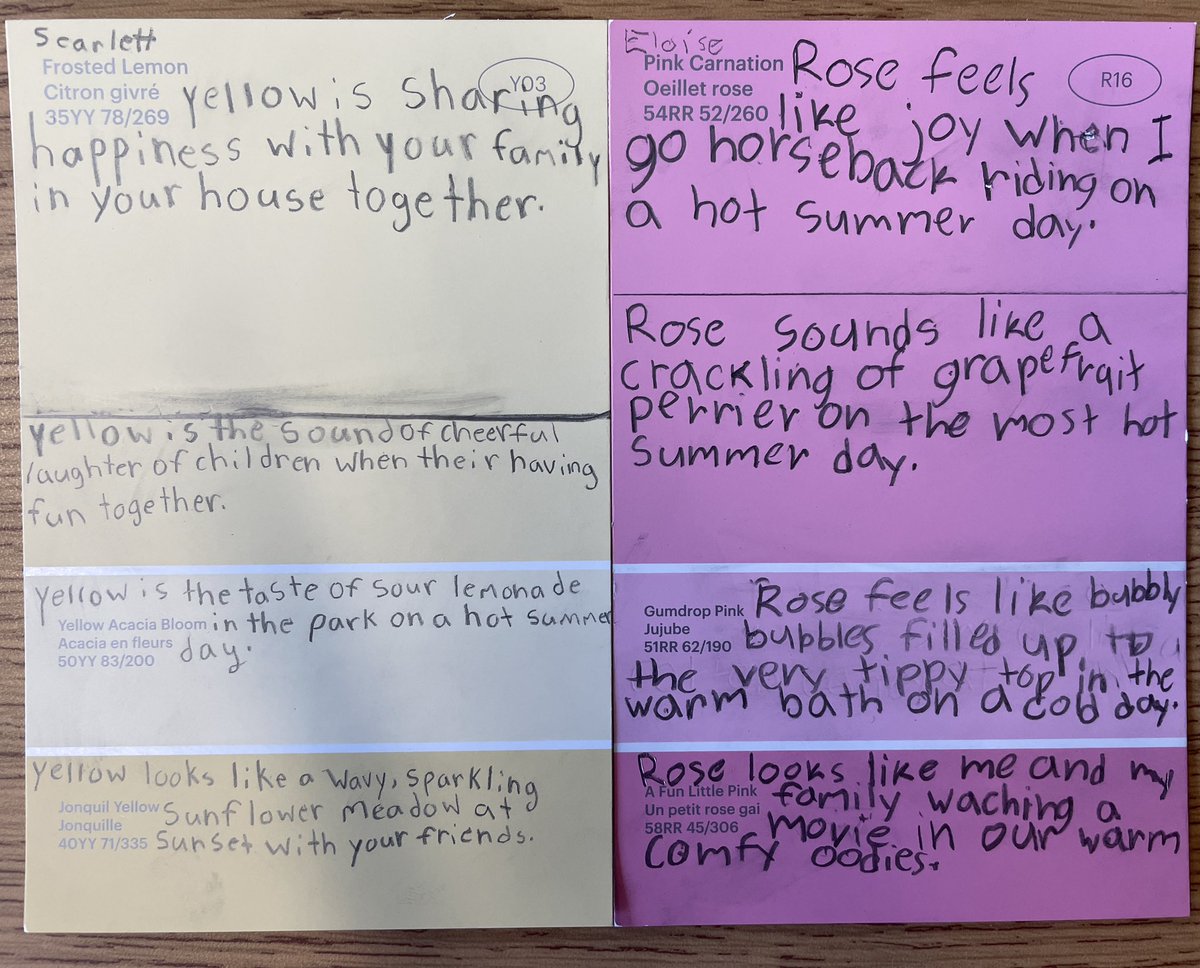 Scarlett
Frosted Lemon
Citron givré
35YY 78/269
Y03
yellow is sharing
happiness with your family
in your house together.
yellow is the sound of cheerful
laughter of children when their having
fun together.
yellow is the taste of sour lemonade
Yellow Acacia Bloom
Acacia en fleurs
50YY 83/200
in the park on a hot summer
day.
yellow looks like a wavy, sparkling
Jonquil Yellow
Jonquille
40YY 71/335
sunflower meadow at
sunset with your friends.
Eloise
Pink Carnation
Oeillet rose
54RR 52/260
R16
Rose feels
like joy when I
go horseback riding on
a hot summer day.
Rose sounds like a
crackling of grapefruit
perrier on the most hot
summer day.
Gumdrop Pink
Jujube
51RR 62/190
Rose feels like bubbly
bubbles filled up to
the very tippy top in the
warm bath on a cold day.
Rose looks like me and my
A Fun Little Pink
Un petit rose gai
58RR 45/306
family waching a
movie in our warm
comfy oodies.